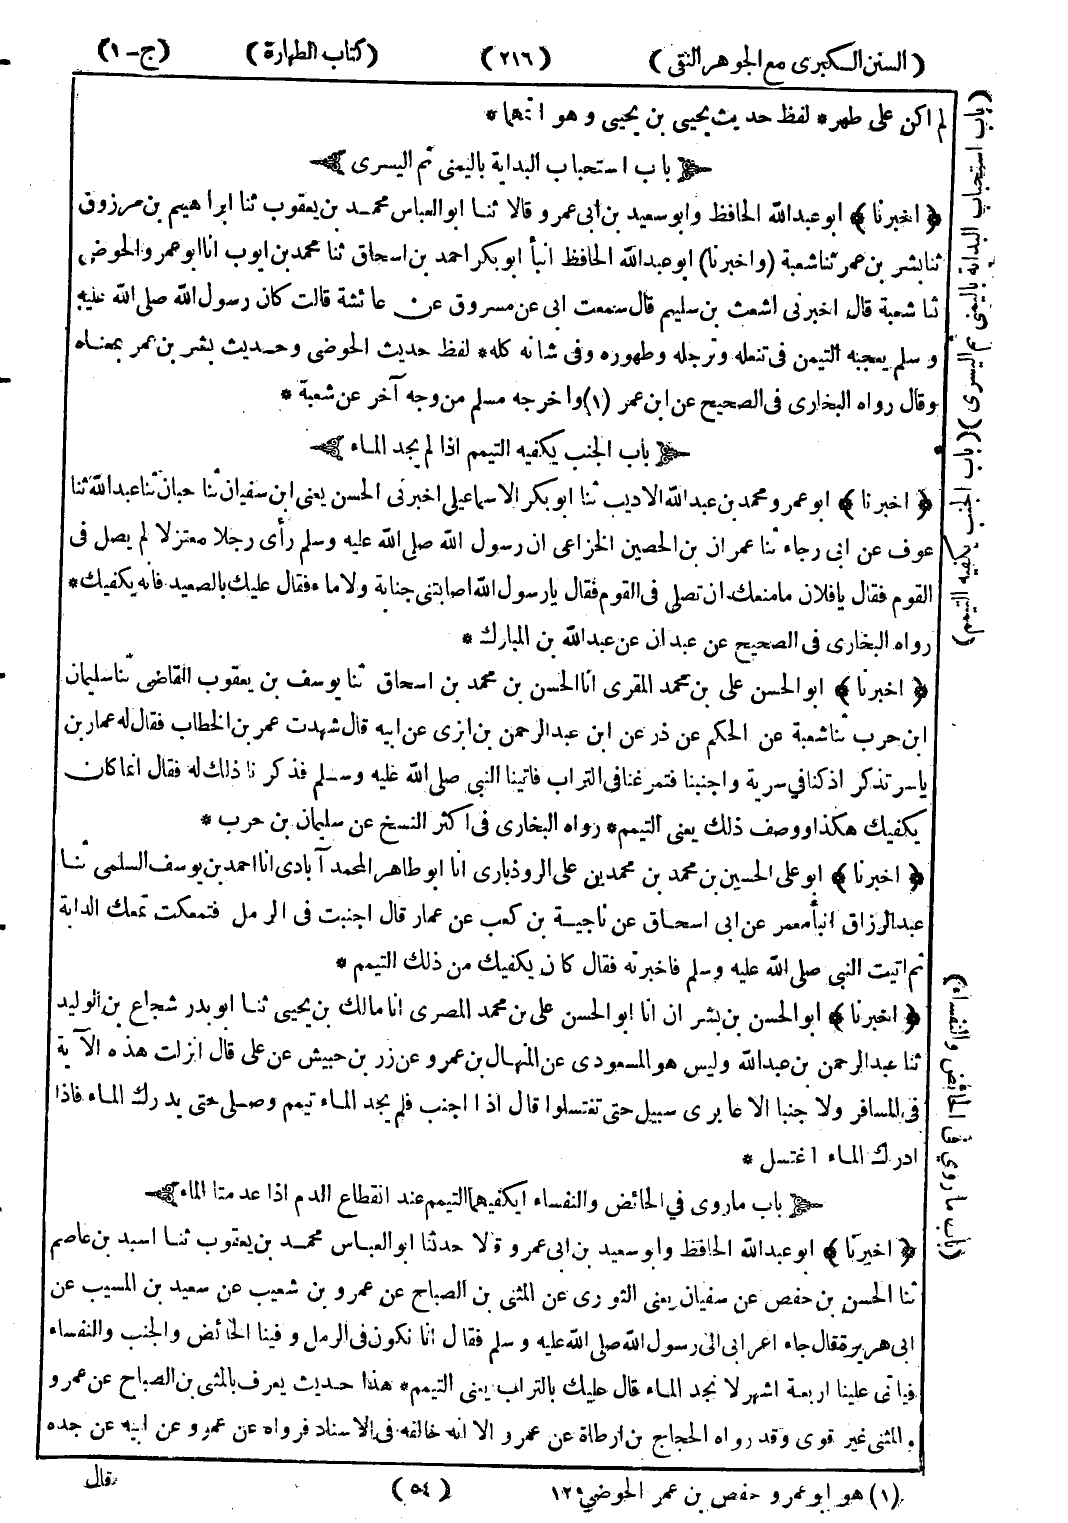 ( السنن الكبرى مع الجوهر النقى ) ( ٢١٦ ) ( كتاب الطهارة ) ( ج - ١ )
لم اكن على طهر * لفظ حديث يحيى بن يحيى و هو اتمها *
باب استحباب البداية باليمنى ثم اليسرى
﴿ اخبرنا ﴾ ابو عبدالله الحافظ وابو سعيد بن ابى عمرو قالا ثنا ابو العباس محمد بن يعقوب ثنا ابراهيم بن مرزوق
ثنا بشر بن عمر ثنا شعبة (واخبرنا) ابو عبدالله الحافظ انبأ ابو بكر احمد بن اسحاق ثنا محمد بن ايوب انا ابو عمر والحوضى
ثنا شعبة قال اخبرنى اشعث بن سليم قال سمعت ابى عن مسروق عن عائشة قالت كان رسول الله صلى الله عليه
و سلم يعجبه التيمن فى تنعله وترجله وطهوره وفى شانه كله * لفظ حديث الحوضى وحديث بشر بن عمر بمعناه
وقال رواه البخارى فى الصحيح عن ابن عمر (١) واخرجه مسلم من وجه آخر عن شعبة *
باب الجنب يكفيه التيمم اذا لم يجد الماء
﴿ اخبرنا ﴾ ابو عمرو محمد بن عبدالله الاديب ثنا ابو بكر الاسماعيلى اخبرنى الحسن يعنى ابن سفيان ثنا حبان ثنا عبدالله ثنا
عوف عن ابى رجاء ثنا عمران بن الحصين الخزاعى ان رسول الله صلى الله عليه وسلم رأى رجلا معتزلا لم يصل فى
القوم فقال يافلان مامنعك ان تصلى فى القوم فقال يارسول الله اصابتنى جنابة ولا ماء فقال عليك بالصعيد فانه يكفيك *
رواه البخارى فى الصحيح عن عبدان عن عبدالله بن المبارك *
﴿ اخبرنا ﴾ ابو الحسن على بن محمد المقرى انا الحسن بن محمد بن اسحاق ثنا يوسف بن يعقوب القاضى ثنا سليمان
ابن حرب ثنا شعبة عن الحكم عن ذر عن ابن عبد الرحمن بن ابزى عن ابيه قال شهدت عمر بن الخطاب فقال له عمار بن
ياسر تذكر اذ كنا في سرية واجنبنا فتمرغنا فى التراب فاتينا النبى صلى الله عليه وسلم فذكرنا ذلك له فقال انما كان
يكفيك هكذا ووصف ذلك يعنى التيمم * رواه البخارى فى اكثر النسخ عن سليمان بن حرب *
﴿ اخبرنا ﴾ ابو على الحسين بن محمد بن محمد بن على الروذبارى انا ابو طاهر المحمد آبادى انا احمد بن يوسف السلمى ثنا
عبد الرزاق انبأ معمر عن ابى اسحاق عن ناجية بن كعب عن عمار قال اجنبت فى الرمل فتمعكت تمعك الدابة
ثم اتيت النبى صلى الله عليه وسلم فاخبرته فقال كان يكفيك من ذلك التيمم *
﴿ اخبرنا ﴾ ابو الحسن بن بشران انا ابو الحسن على بن محمد المصرى انا مالك بن يحيى ثنا ابو بدر شجاع بن الوليد
ثنا عبد الرحمن بن عبدالله وليس هو المسعودى عن المنهال بن عمرو عن زر بن حبيش عن على قال انزلت هذه الآية
فى المسافر ولا جنبا الا عابرى سبيل حتى تغتسلوا قال اذا اجنب فلم يجد الماء تيمم وصلى حتى يدرك الماء فاذا
ادرك الماء اغتسل *
باب ماروى في الحائض والنفساء ايكفيهما التيمم عند انقطاع الدم اذا عدمتا الماء
﴿ اخبرنا ﴾ ابو عبدالله الحافظ وابو سعيد بن ابى عمرو قالا حدثنا ابو العباس محمد بن يعقوب ثنا اسيد بن عاصم
ثنا الحسن بن حفص عن سفيان يعنى الثورى عن المثنى بن الصباح عن عمرو بن شعيب عن سعيد بن المسيب عن
ابى هريرة قال جاء اعرابى الى رسول الله صلى الله عليه و سلم فقال انا نكون فى الرمل و فينا الحائض والجنب والنفساء
فياتى علينا اربعة اشهر لا نجد الماء قال عليك بالتراب يعنى التيمم * هذا حديث يعرف بالمثنى بن الصباح عن عمرو
والمثنى غير قوى وقد رواه الحجاج بن ارطاة عن عمرو الا انه خالفه فى الاسناد فرواه عن عمرو عن ابيه عن جده
قال
(١) هو ابو عمرو حفص بن عمر الحوضي ١٢ ( ٥٤ )
(باب استحباب البداية باليمنى ثم اليسرى) (باب الجنب يكفيه التيمم)
(باب ماروي في الحائض والنفساء)